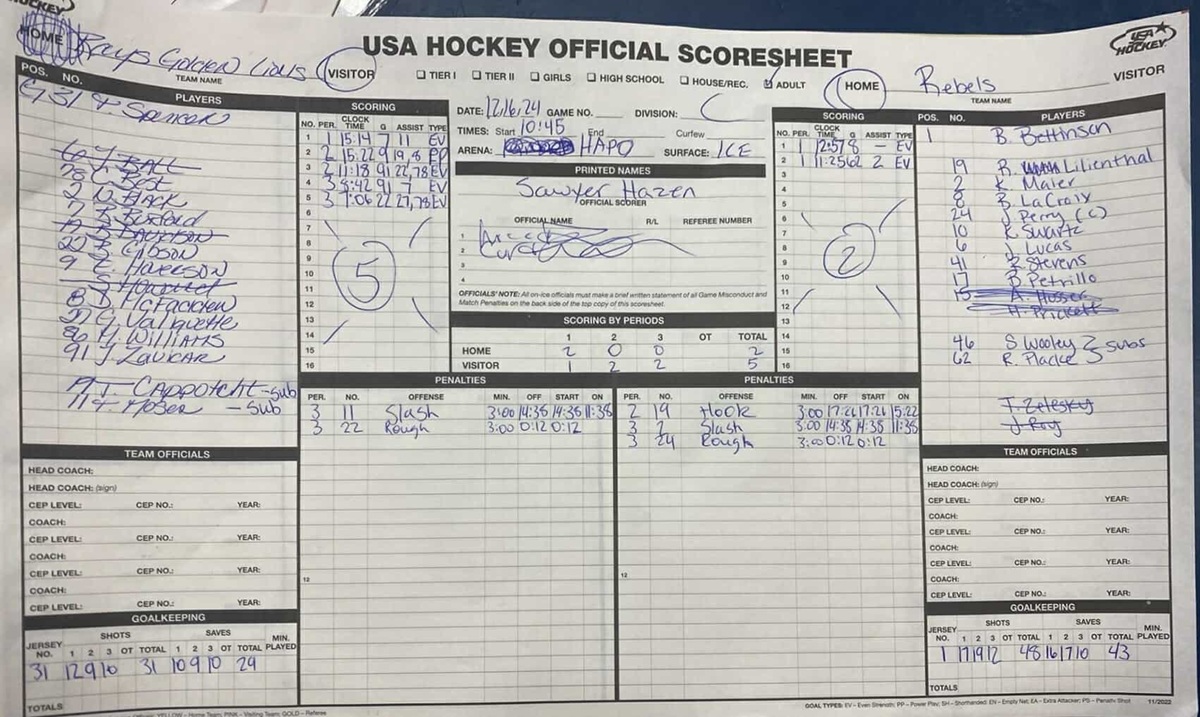 HOCKEY
USA HOCKEY OFFICIAL SCORESHEET
USA HOCKEY
HOME Rays Golden Lions VISITOR
TEAM NAME
TIER I TIER II GIRLS HIGH SCHOOL HOUSE/REC. ADULT
HOME Rebels VISITOR
TEAM NAME
POS. NO. PLAYERS
G 31 Spencer
Ball
Best
Hack
Gibson
9 Haverson
8 McFadden
Valquette
86 Williams
91 J. Zavicar
Cappotelli - sub
Moser - sub
SCORING
NO. PER. CLOCK TIME G ASSIST TYPE
1 1 15:14 7 11 EV
2 2 15:22 9 19, 8 PP
3 2 11:18 91 22, 78 EV
4 3 8:42 91 7 EV
5 3 1:06 22 27, 78 EV
6
7
8
9
10
11
12
13
14
15
16
5
DATE: 12/16/24 GAME NO. DIVISION: C
TIMES: Start 10:45 End Curfew
ARENA: HAPO SURFACE: ICE
PRINTED NAMES
Sawyer Hazen
OFFICIAL SCORER
OFFICIAL NAME R/L REFEREE NUMBER
1
2
3
4
OFFICIALS' NOTE: All on-ice officials must make a brief written statement of all Game Misconduct and
Match Penalties on the back side of the top copy of this scoresheet.
SCORING BY PERIODS
1 2 3 OT TOTAL
HOME 2 0 0 2
VISITOR 1 2 2 5
SCORING
NO. PER. CLOCK TIME G ASSIST TYPE
1 1 12:57 8 - EV
2 1 11:25 62 2 EV
3
4
5
6
7
8
9
10
11
12
13
14
15
16
2
POS. NO. PLAYERS
1 B. Bettinson
19 B. Lilienthal
2 K. Maier
8 B. LaCroix
24 J. Perry (C)
10 K. Swartz
6 J. Lucas
41 R. Stevens
17 B. Petrillo
15 A. Husser
H. Prickett
46 S Wooley
62 R. Placke
subs
T. Zelesky
J Roy
PENALTIES
PER. NO. OFFENSE MIN. OFF START ON
3 11 Slash 3:00 14:38 14:38 11:38
3 22 Rough 3:00 0:12 0:12
12
PENALTIES
PER. NO. OFFENSE MIN. OFF START ON
2 19 Hook 3:00 17:26 17:26 15:22
3 2 Slash 3:00 14:38 14:38 11:38
3 24 Rough 3:00 0:12 0:12
12
TEAM OFFICIALS
HEAD COACH:
HEAD COACH: (sign)
CEP LEVEL: CEP NO.: YEAR:
COACH:
CEP LEVEL: CEP NO.: YEAR:
COACH:
CEP LEVEL: CEP NO.: YEAR:
COACH:
CEP LEVEL: CEP NO.: YEAR:
GOALKEEPING
SHOTS SAVES
JERSEY NO. 1 2 3 OT TOTAL 1 2 3 OT TOTAL MIN. PLAYED
31 12 9 10 31 10 9 10 29
TOTALS
TEAM OFFICIALS
HEAD COACH:
HEAD COACH: (sign)
CEP LEVEL: CEP NO.: YEAR:
COACH:
CEP LEVEL: CEP NO.: YEAR:
COACH:
CEP LEVEL: CEP NO.: YEAR:
COACH:
CEP LEVEL: CEP NO.: YEAR:
GOALKEEPING
SHOTS SAVES
JERSEY NO. 1 2 3 OT TOTAL 1 2 3 OT TOTAL MIN. PLAYED
1 17 19 12 48 16 17 10 43
TOTALS
YELLOW – Home Team; PINK – Visiting Team; GOLD – Referee
GOAL TYPES: EV – Even Strength; PP – Power Play; SH – Shorthanded; EN – Empty Net; EA – Extra Attacker; PS – Penalty Shot 11/2022